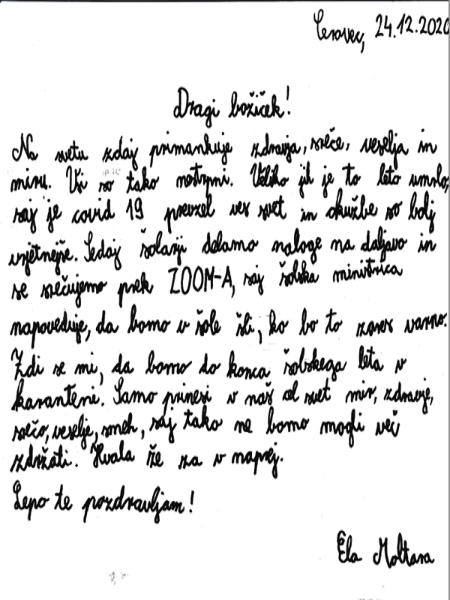 Cerovec, 24.12.2020
Dragi božiček!
Na svetu zdaj primankuje zdravja, sreče, veselja in
miru. Vsi so tako nestrpni. Veliko jih je to leto umrlo,
saj je covid 19 prevzel ves svet in okužbe so bolj
verjetnejše. Sedaj šolarji delamo naloge na daljavo in
se srečujemo prek ZOOM-A, saj šolska ministrica
napoveduje, da bomo v šole šli, ko bo to zares varno.
Zdi se mi, da bomo do konca šolskega leta v
karanteni. Samo prinesi v naš cel svet mir, zdravje,
srečo, veselje, smeh, saj tako ne bomo mogli več
zdržati. Hvala že za v naprej.
Lepo te pozdravljam!
Ela Moltara